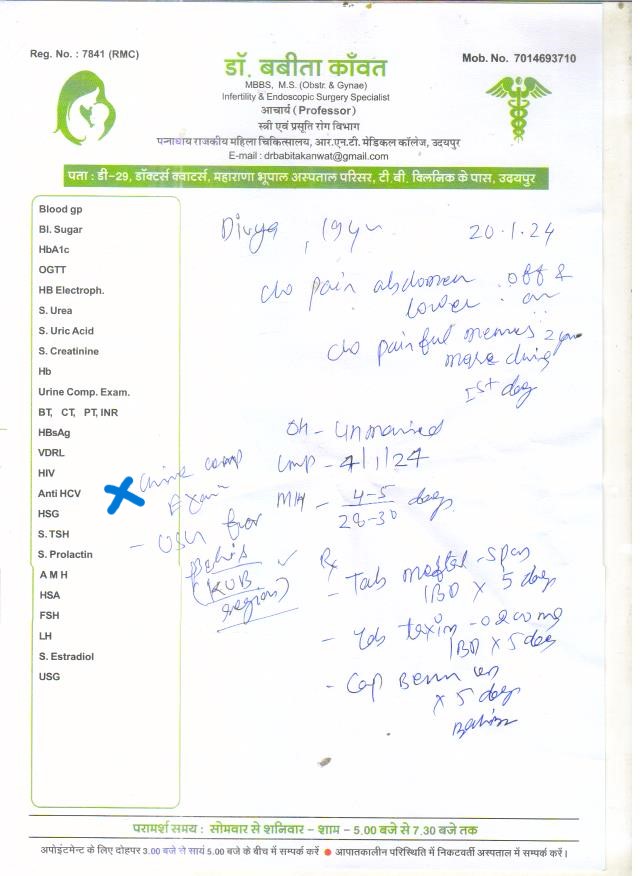 Reg. No. : 7841 (RMC)
Mob. No. 7014693710
डॉ. बबीता काँवत
MBBS, M.S. (Obstr. & Gynae)
Infertility & Endoscopic Surgery Specialist
आचार्य (Professor)
स्त्री एवं प्रसूति रोग विभाग
पन्नाधाय राजकीय महिला चिकित्सालय, आर.एन.टी. मेडिकल कॉलेज, उदयपुर
E-mail : drbabitakanwat@gmail.com
पता : डी-29, डॉक्टर्स क्वाटर्स, महाराणा भूपाल अस्पताल परिसर, टी.बी. क्लिनिक के पास, उदयपुर
Blood gp
Bl. Sugar
HbA1c
OGTT
HB Electroph.
S. Urea
S. Uric Acid
S. Creatinine
Hb
Urine Comp. Exam.
BT, CT, PT, INR
HBsAg
VDRL
HIV
Anti HCV
HSG
S. TSH
S. Prolactin
A M H
HSA
FSH
LH
S. Estradiol
USG
Divya, 19y
20.1.24
c/o pain abdomen off &
lower on
c/o painful menses
more during
Ist day
OH - Unmarried
LMP - 4/1/24
MH - 4-5 days
28-30
Urine comp
Exam
- USG for
Pelvis
(KUB
region)
Rx
- Tab Meftal-Spas
1BD x 5 days
- Tab Taxim-O 200mg
1BD x 5 days
- Cap
x 5 days
परामर्श समय : सोमवार से शनिवार – शाम – 5.00 बजे से 7.30 बजे तक
अपोइंटमेन्ट के लिए दोहपर 3.00 बजे से सायं 5.00 बजे के बीच में सम्पर्क करें ● आपातकालीन परिस्थिति में निकटवर्ती अस्पताल में सम्पर्क करें।